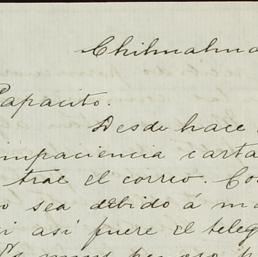 Chihuahua
Papacito.
Desde hace
impaciencia carta
trae el correo. Co
o sea debido á m
i asi fuere el teleg